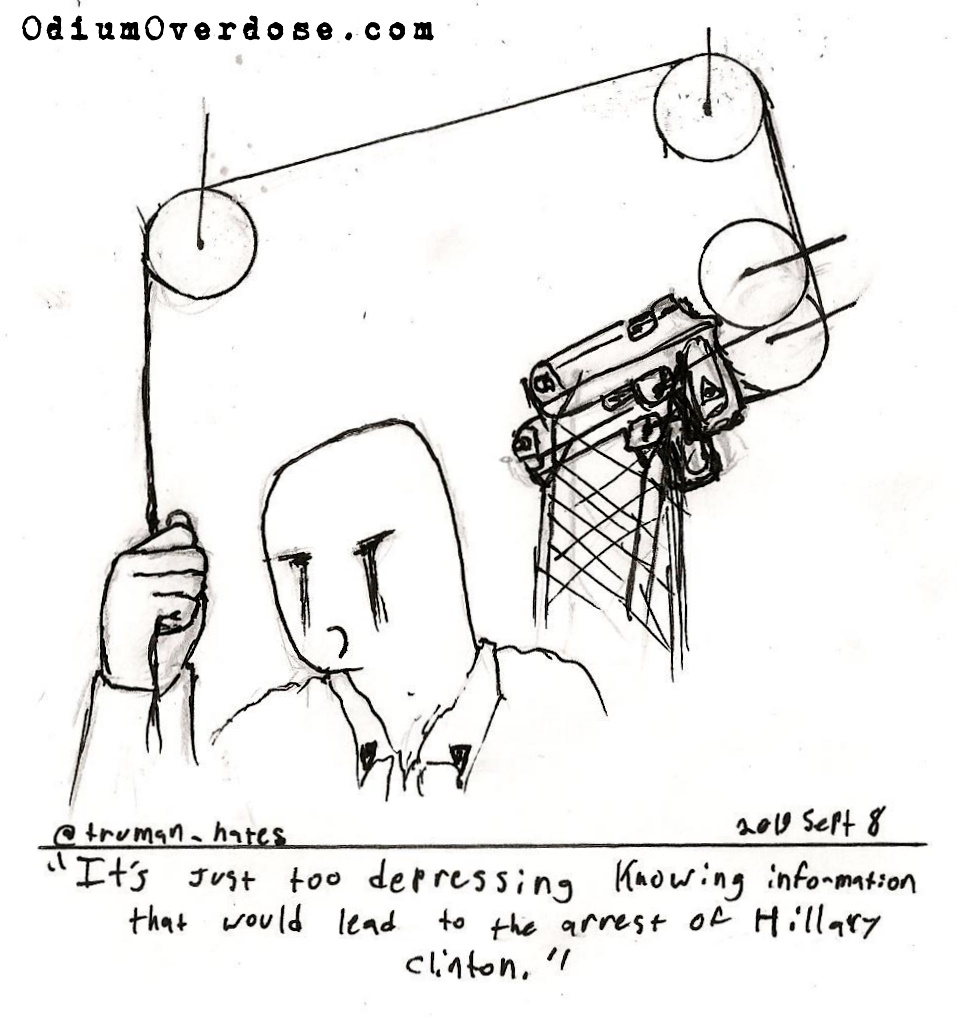 OdiumOverdose.com
@truman_hates
Sept 8
"It's just too depressing knowing information
that would lead to the arrest of Hillary
Clinton."